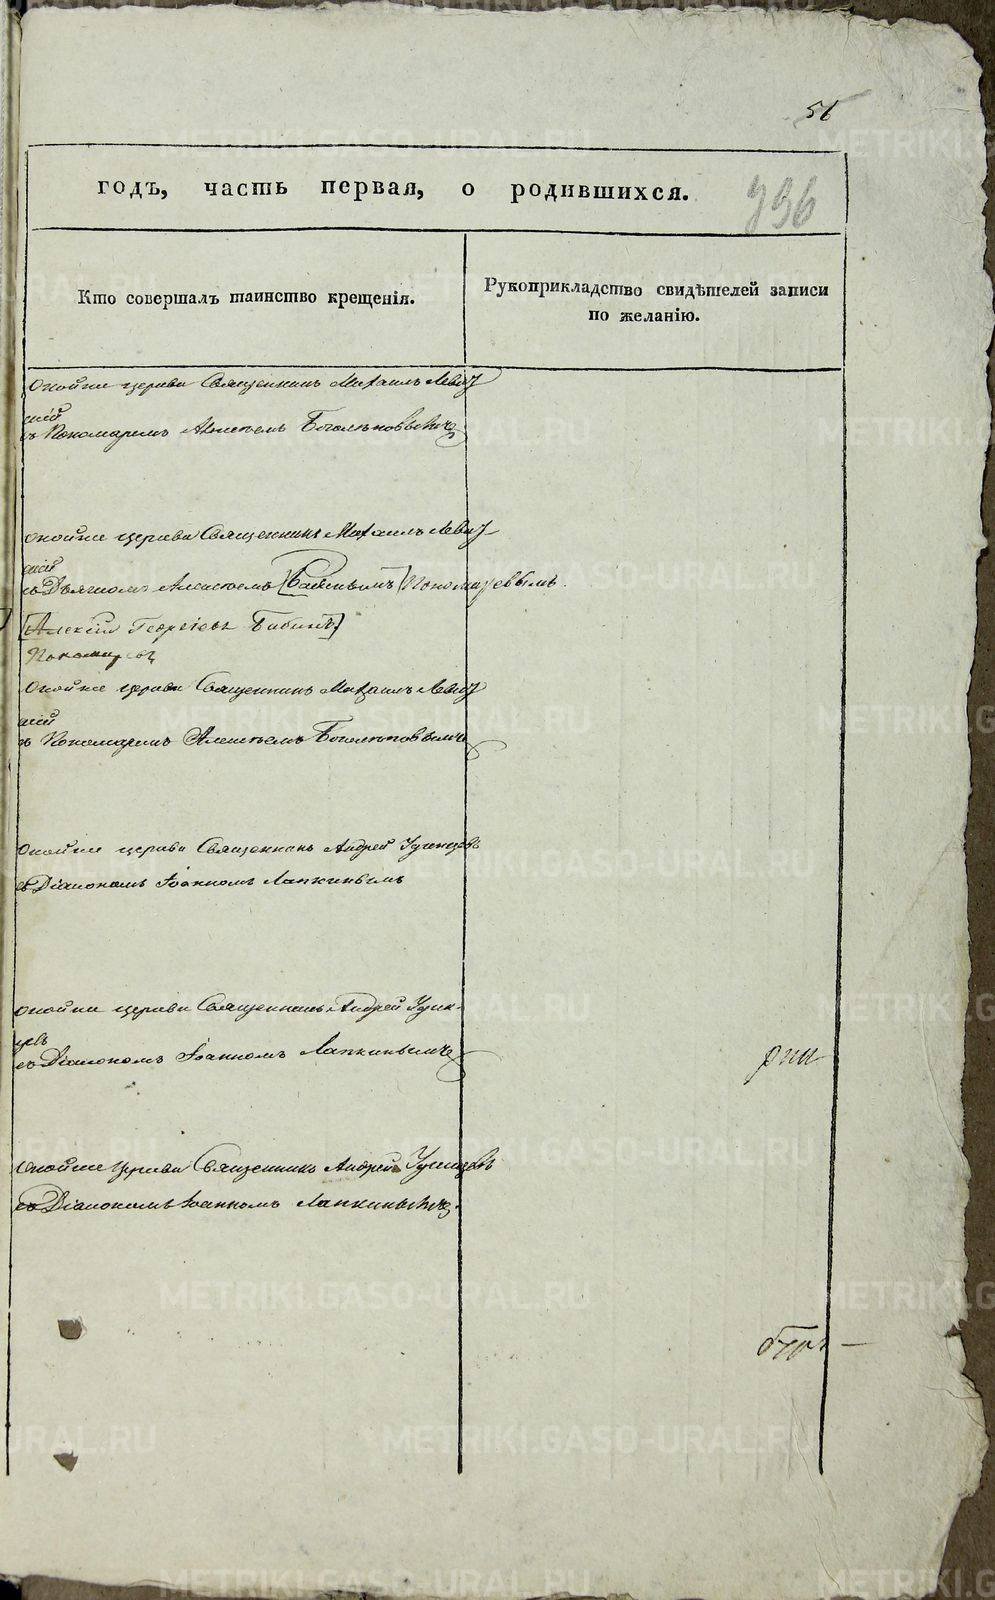 56
годъ, часть первая, о родившихся.
936
Кто совершалъ таинство крещенія.
Рукоприкладство свидѣтелей записи
по желанію.
оной же церкви Священникъ Михаилъ Левиц
кій
съ Пономаремъ Алексѣемъ
оной же церкви Священникъ Михаилъ Левиц
кій
съ Дьячкомъ Алексѣемъ Пономаревымъ.
[Алексѣй Георгіевъ Бабинъ]
Пономаревъ
оной же церкви Священникъ Михаилъ Левиц
кій
съ Пономаремъ Алексѣемъ
оной же церкви Священникъ Андрей Удинцовъ
съ Діакономъ Іоанномъ Лапкинымъ
оной же церкви Священникъ Андрей Удин-
цовъ
съ Діакономъ Іоанномъ Лапкинымъ
оной же церкви Священникъ Андрей Удинцовъ
съ Діакономъ Іоанномъ Лапкинымъ
METRIKI.GASO-URAL.RU